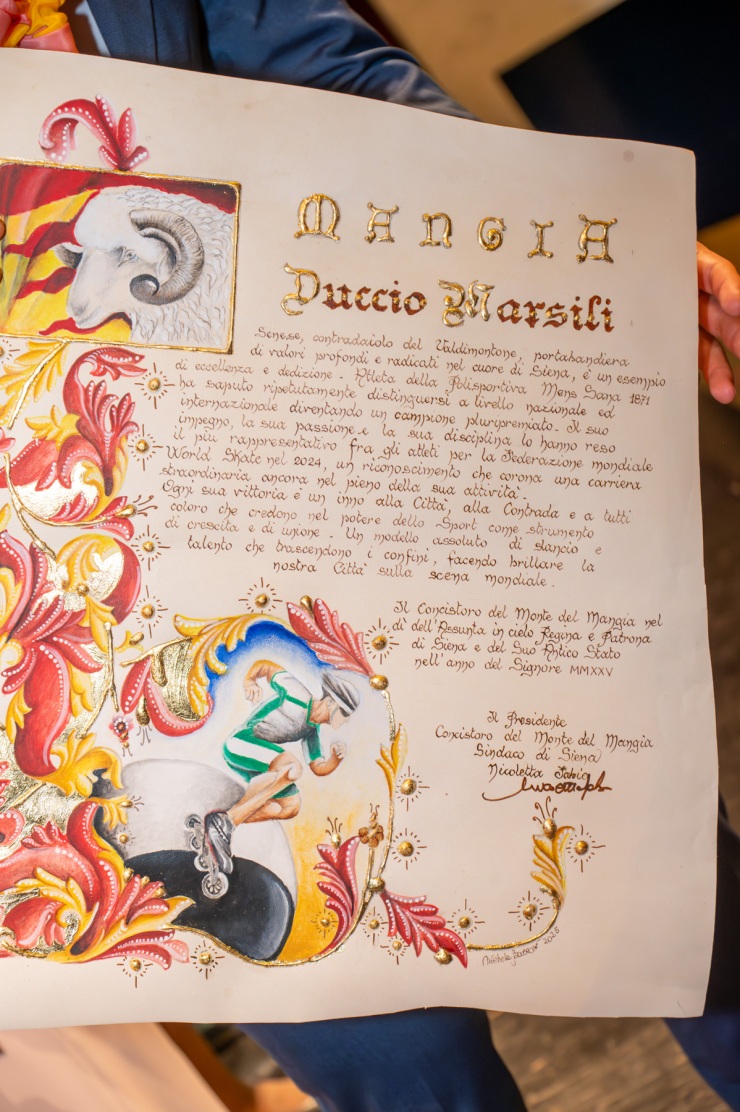 MANGIA
Duccio Marsili
Senese, contradaiolo del Valdimontone, portabandiera
di valori profondi e radicati nel cuore di Siena, é un esempio
di eccellenza e dedizione. Atleta della Polisportiva Mens Sana 1871
ha saputo ripetutamente distinguersi a livello nazionale ed
internazionale diventando un campione pluripremiato. Il suo
impegno, la sua passione e la sua disciplina lo hanno reso
il piu rappresentativo fra gli atleti per la Federazione mondiale
World Skate nel 2024, un riconoscimento che corona una carriera
straordinaria ancora nel pieno della sua attivitá.
Ogni sua vittoria é un inno alla Cittá, alla Contrada e a tutti
coloro che credono nel potere dello Sport come strumento
di crescita e di unione. Un modello assoluto di slancio e
talento che trascendono i confini, facendo brillare la
nostra Cittá sulla scena mondiale.
Il Concistoro del Monte del Mangia nel
dí dell'Assunta in cielo Regina e Patrona
di Siena e del Suo Antico Stato
nell'anno del Signore MMXXV
Il Presidente
Concistoro del Monte del Mangia
Sindaco di Siena
Nicoletta Fabio
2025